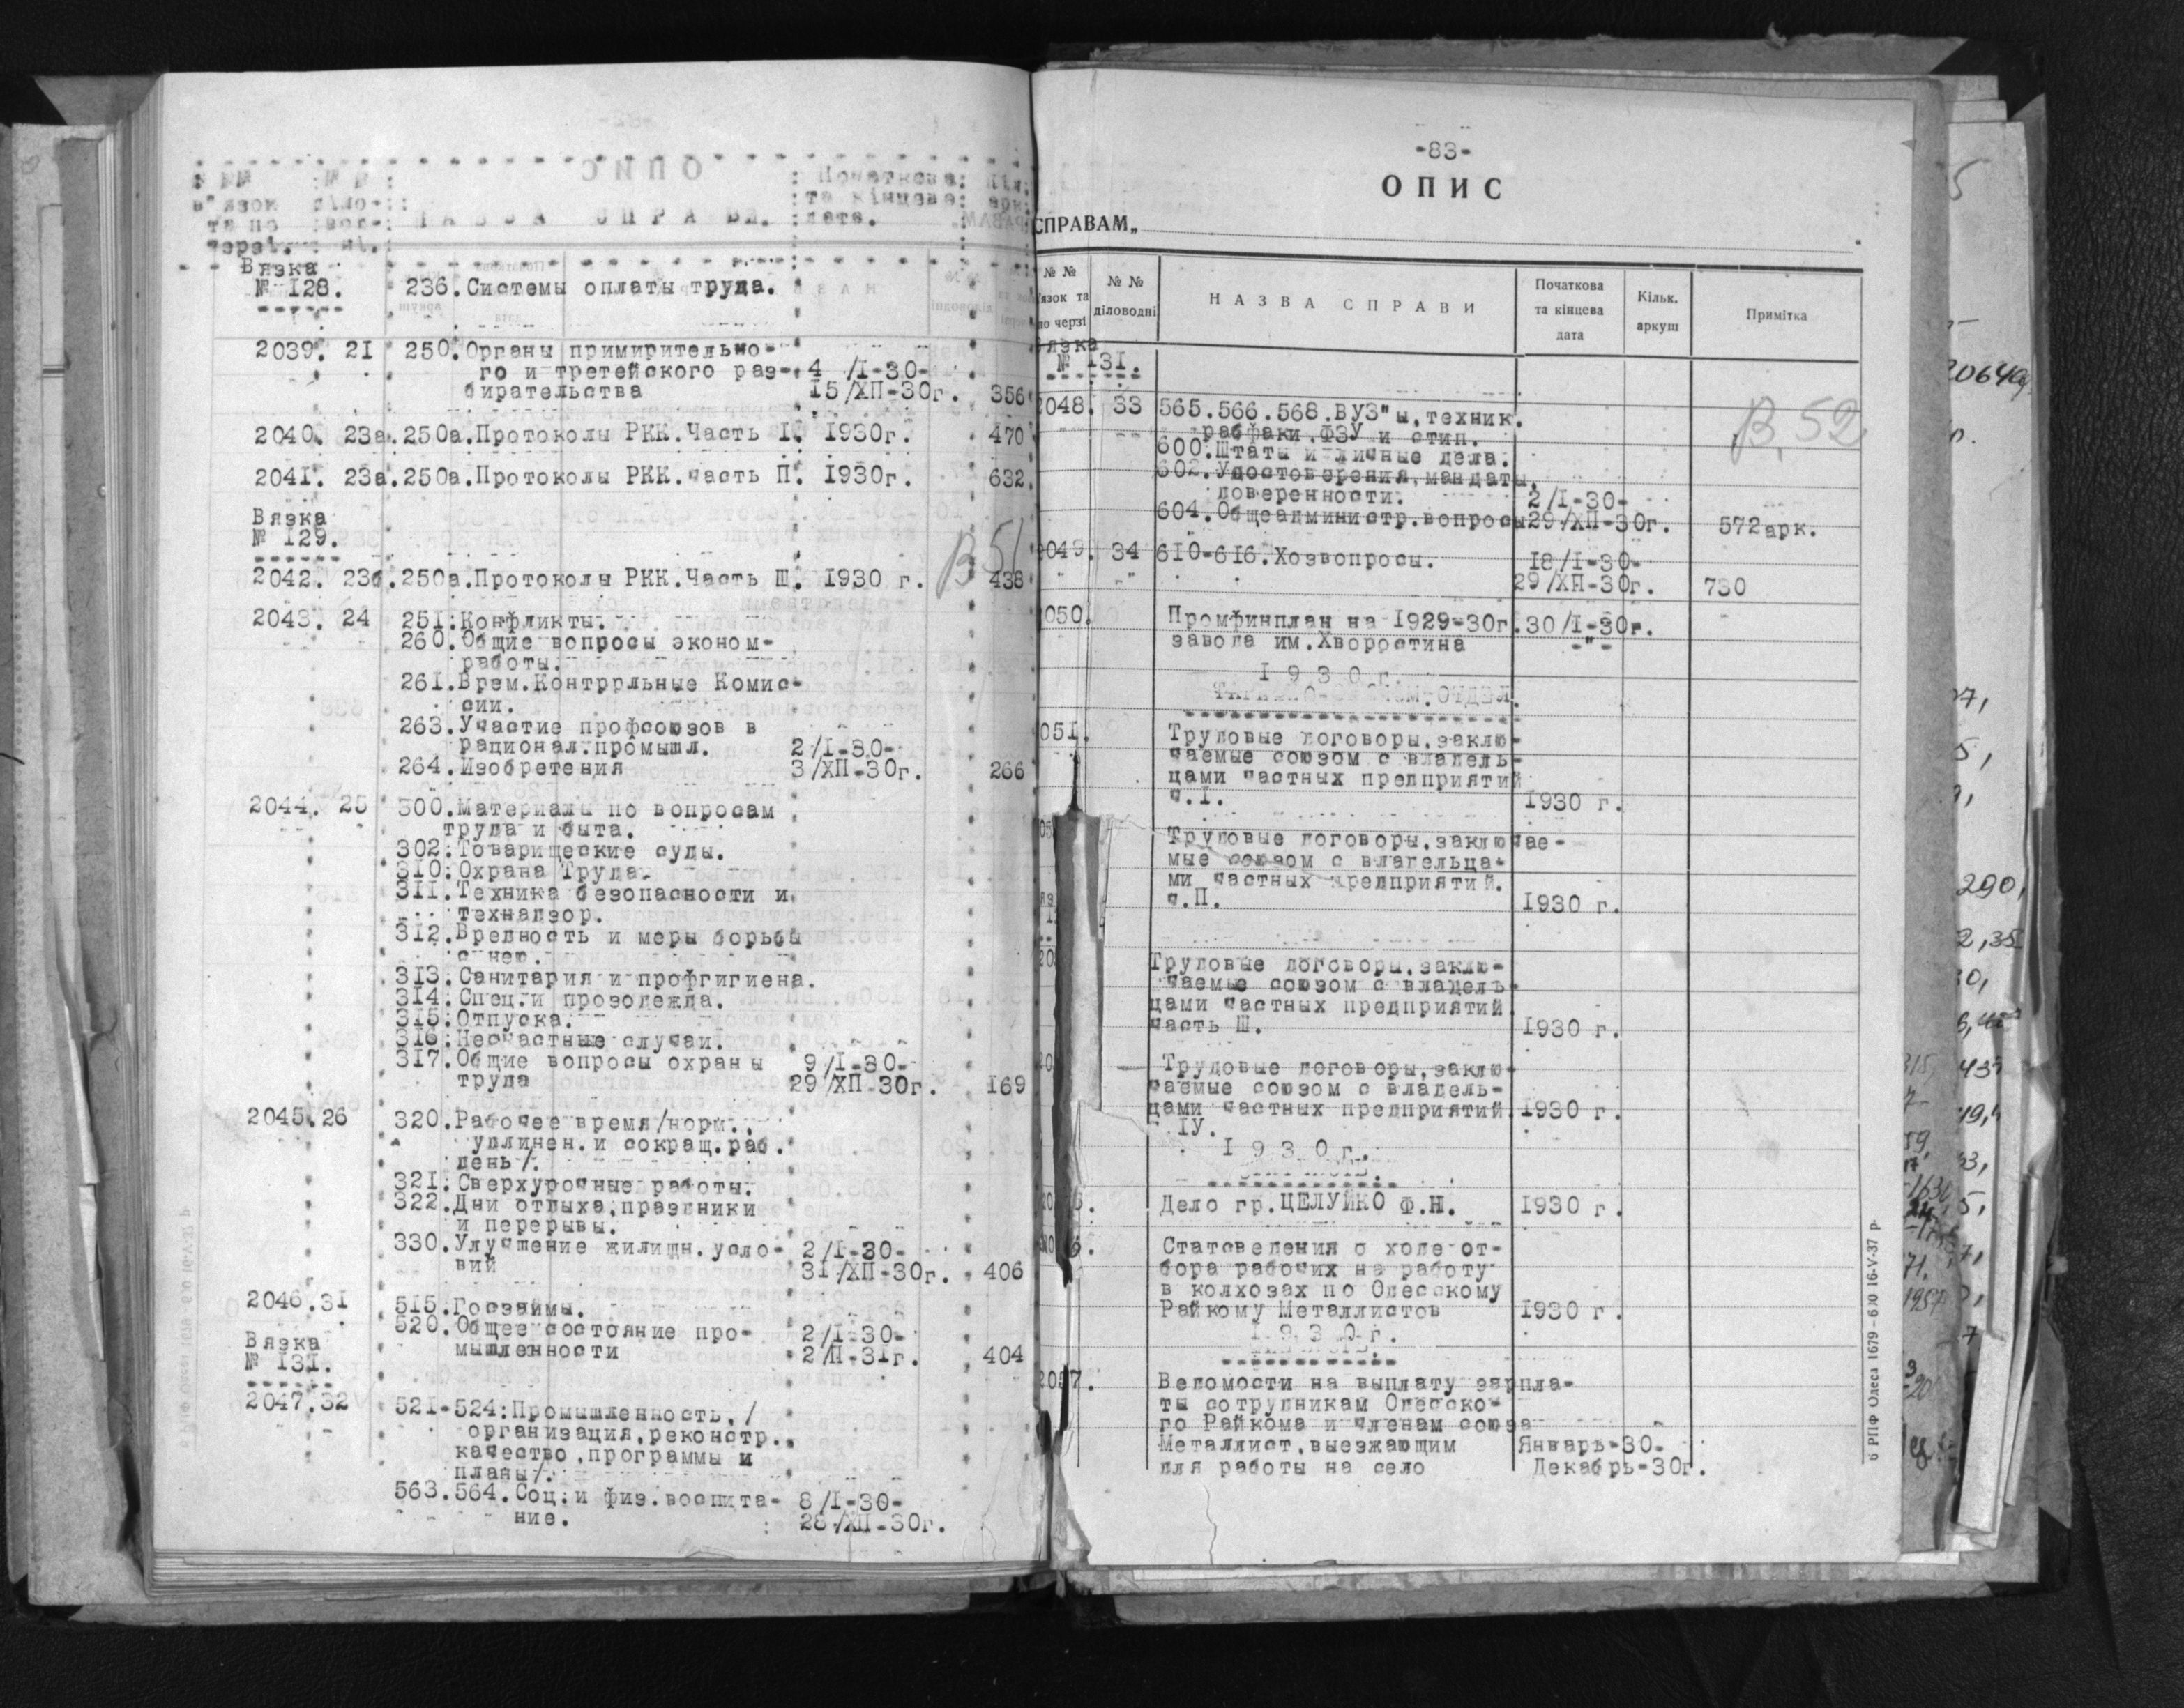 №№ :№ № : : Початкова: Кіл.
в"язок діло- : : та кінцева: арк.
та по вод- НАЗВА СПРАВИ. : дата.
черзі. ні.
Вязка
№ 128. 236.Системы оплаты труда.
2039. 21 250.Органы примирительно-
го и третейского раз- 4 /I-30-
бирательства 15/ХП-30г. 356
2040. 23а.250а.Протоколы РКК.Часть I. 1930г. 470
2041. 23а.250а.Протоколы РКК.часть П. 1930г. 632.
Вязка
№ 129.
В 51
2042. 23б.250а.Протоколы РКК.Часть Ш. 1930 г. 438
2043. 24 251.Конфликты.
260.Общие вопросы эконом-
работы.
261.Врем.Контррльные Комис-
сии.
263.Участие профсоюзов в
рационал.промышл. 2/I-30-
264.Изобретения 3/ХП-30г. 266
2044. 25 300.Материалы по вопросам
труда и быта.
302.Товарищеские суды.
310.Охрана Труда.
311.Техника безопасности и
технадзор.
312.Вредность и меры борьбы
с нею.
313.Санитария и профгигиена.
314.Спец.и прозодежда.
315.Отпуска.
316.Несчастные случаи.
317.Общие вопросы охраны 9/I-30-
труда 29/ХП-30г. 169
2045.26 320.Рабочее время/норм.,
удлинен.и сокращ.раб.
день/.
321.Сверхурочные работы.
322.Дни отдыха,праздники
и перерывы.
330.Улучшение жилищн.усло- 2/I-30-
вий 31/ХП-30г. 406
2046.31 515.Госзаймы.
520.Общее состояние про- 2/I-30-
мышленности 2/П-31г. 404
Вязка
№ 131.
2047.32 521-524:Промышленность,/
организация,реконстр.,
качество,программы и
планы/.
563.564.Соц.и физ.воспита- 8/I-30-
ние. 28/ХП-30г.
-83-
ОПИС
СПРАВАМ„
№ № в'язок та по черзі
№ № діловодні
НАЗВА СПРАВИ
Початкова та кінцева дата
Кільк. аркуш
Примітка
Вязка
№ 131.
2048. 33 565.566.568.ВУЗ"ы,техник.
рабфаки,ФЗУ и стип.
В. 52
600.Штаты и личные дела.
602.Удостоверения,мандаты,
доверенности. 2/I-30-
604.Общеадминистр.вопросы 29/ХП-30г. 572арк.
2049. 34 610-616.Хозвопросы. 18/I-30-
29/ХП-30г. 730
2050. Промфинплан на 1929-30г. 30/I-30г.
завода им.Хворостина -"-
1930г.
ТАРИФНО-ЭКОНОМ.ОТДЕЛ.
051. Трудовые договоры,заклю-
чаемые союзом с владель-
цами частных предприятий
ч.I. 1930 г.
Трудовые договоры,заключае-
мые союзом с владельца-
ми частных предприятий.
ч.П. 1930 г.
Трудовые договоры,заклю-
чаемые союзом с владель-
цами частных предприятий.
часть Ш. 1930 г.
Трудовые договоры,заклю-
чаемые союзом с владель-
цами частных предприятий. 1930 г.
IУ.
1930г.
Дело гр.ЦЕЛУЙКО Ф.Н. 1930 г.
Статсведения о ходе от-
бора рабочих на работу
в колхозах по Одесскому
Райкому Металлистов 1930 г.
1930г.
2057. Ведомости на выплату зарпла-
ты сотрудникам Одесско-
го Райкома и членам союза
Металлист,выезжающим Январь-30-
для работы на село Декабрь-30г.
6 РПФ Одеса 1679–600 16-V-37 р.
20649
290,